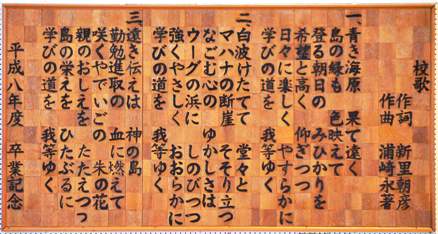 校歌
作詞 新里朝彦
作曲 浦崎永著
一、青き海原 果て遠く
島の緑も 色映えて
登る朝日の みひかりを
希望と高く 仰ぎつつ
日々に楽しく やすらかに
学びの道を 我等ゆく
二、白波けたてて 堂々と
マハナの断崖 そそり立つ
なごむ心の ゆかしさは
ウーグの浜に しのびつつ
強くやさしく おおらかに
学びの道を 我等ゆく
三、遠き伝えは 神の島
勤勉進取の 血に燃えて
咲くやでいごの 朱の花
親のおしえを たたえつつ
島の栄えを ひたぶるに
学びの道を 我等ゆく
平成八年度 卒業記念